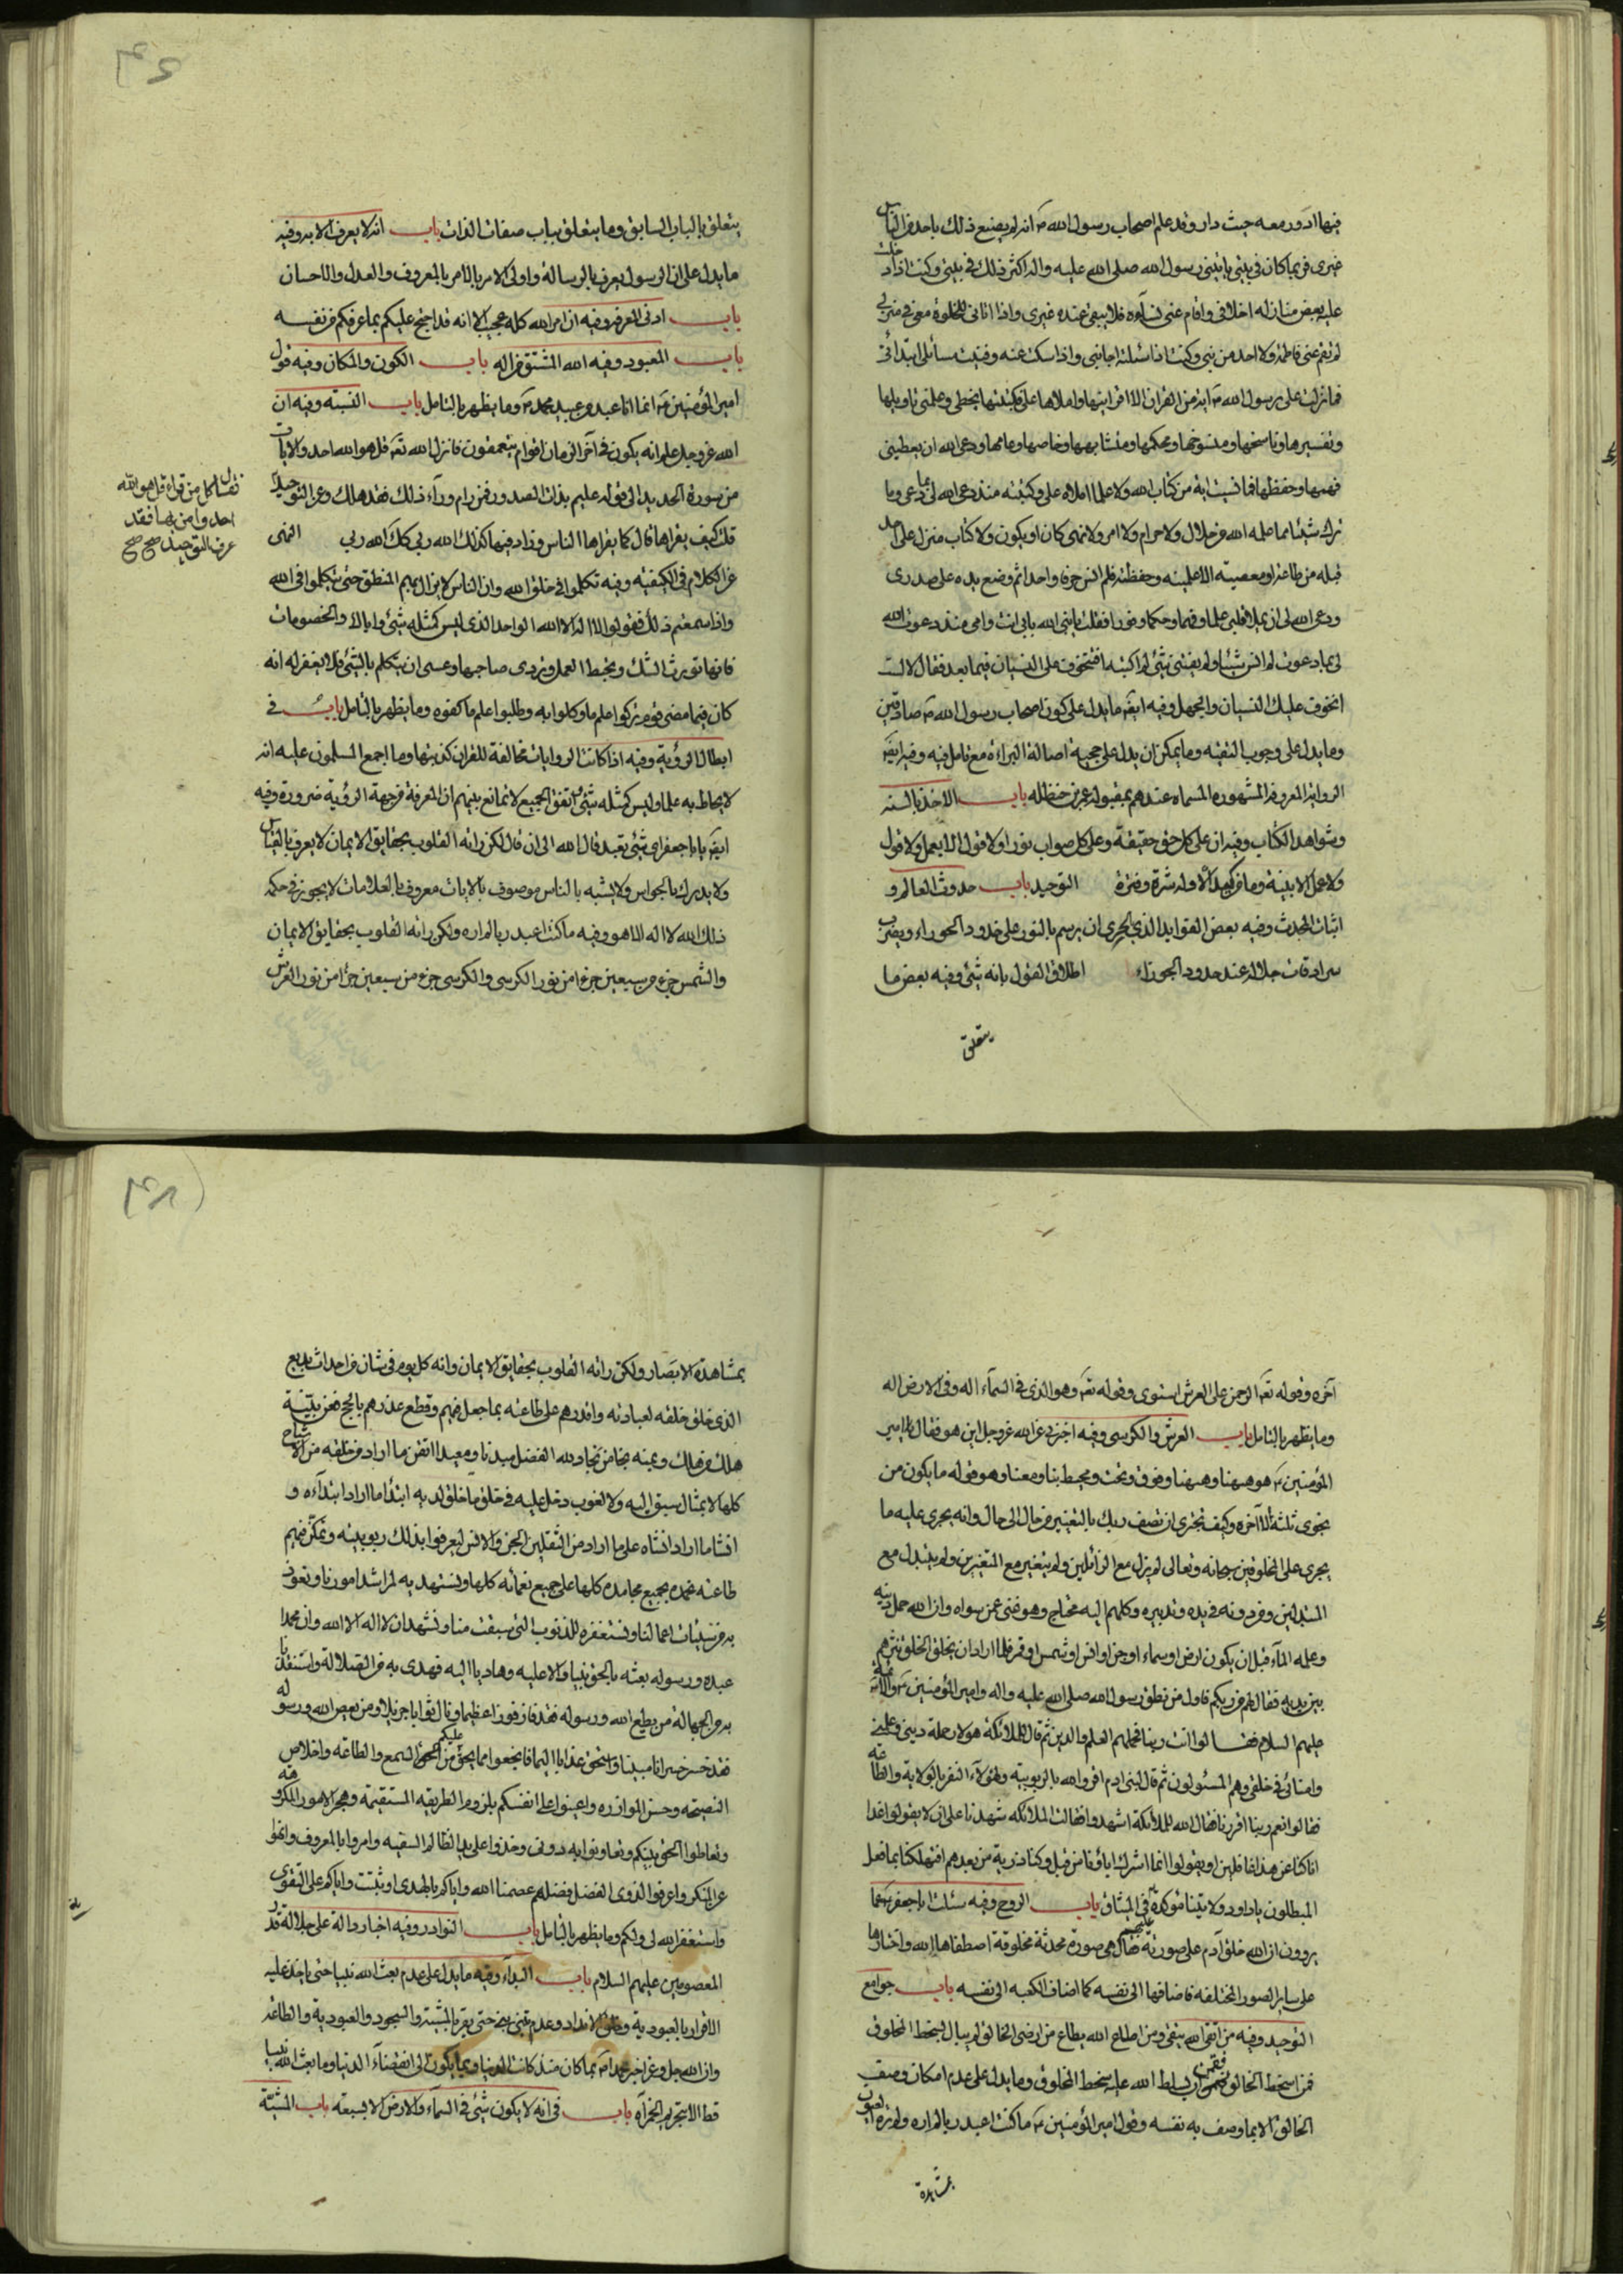 فيها ادور معه حيث دار وقد علم اصحاب رسول الله ص انه لم يصنع ذلك باحد من الناس
غيرى فربما كان فى بيتى ياتينى رسول الله صلى الله عليه واله اكثر ذلك فى بيتى وكنت اذا دخلت
عليه بعض منازله اخلانى واقام عنى نسآءه فلا يبقى عنده غيرى واذا اتانى للخلوة معى فى منزلى
لم تقم عنى فاطمة ولا احد من بنى وكنت اذا سئلته اجابنى واذا سكت عنه وفنيت مسائلى ابتدائى
فما نزلت على رسول الله ص اية من القران الا اقرانيها واملاها على فكتبتها بخطى وعلمنى تاويلها
وتفسيرها وناسخها ومنسوخها ومحكمها ومتشابهها وخاصها وعامها ودعى الله ان يعطينى
فهمها وحفظها فما نسيت اية من كتاب الله ولا علما املاه على وكتبته منذ دعى الله لى بما دعى وما
ترك شيئا مما علمه الله من حلال ولا حرام ولا امر ولا نهى كان او يكون ولا كتاب منزل على احد
قبله من طاعة او معصية الا علمنيه وحفظته فلم انس حرفا واحدا ثم وضع يده على صدرى
ودعى الله لى ان يملا قلبى علما وفهما وحكما ونورا فقلت يا نبى الله بابى انت وامى منذ دعوت الله
لى بما دعوت لم انس شيئا ولم يفتنى شئ لم اكتبه افتتخوف على النسيان فيما بعد فقال لا لست
اتخوف عليك النسيان والجهل وفيه ايضا ما يدل على كون اصحاب رسول الله ص صادقين
وما يدل على وجوب التقيه وما يمكن ان يدل على حجية اصالة البراءة مع تامل فيه وفيه ايضا
الرواية المعروفة المشهوره المسماه عندهم بمقبولة عمر بن حنظله باب الاخذ بالسنه
وشواهد الكتاب وفيه ان على كل حق حقيقة وعلى كل صواب نورا ولا قول الا بعمل ولا قول
ولا عمل الا بنية وما من احد الا وله شرة وفترة التوحيد باب حدوث العالم و
اثبات المحدث وفيه بعض الفوايد الذى الحرى ان يرسم بالنور على خدود الحوراء ويضرب
سرادقات جلاله عند حدود الجوزاء اطلاق القول بانه شئ وفيه بعض ما
يتعلق
يتعلق بالباب السابق وما يتعلق بباب صفات الذات باب انه لا يعرف الا به وفيه
ما يدل على ان الرسول يعرف بالرسالة واولى الامر بالامر بالمعروف والعدل والاحسان
باب ادنى المعرفه وفيه ان امر الله كله عجيب الا انه قد احتج عليكم بما عرفكم من نفسه
باب المعبود وفيه الله المشتق من اله باب الكون والمكان وفيه قول
امير المؤمنين ع انما انا عبد من عبيد محمد ص وما يظهر بالتامل باب النسبة وفيه ان
الله عز وجل علم انه يكون فى آخر الزمان اقوام يتعمقون فانزل الله تع قل هو الله احد والايات
من سورة الحديد الى قوله عليم بذات الصدور فمن رام ورآء ذلك فقد هلك وعن التوحيد
نقال كل من قرأ قل هو الله
احد وآمن بها فقد
عرف التوحيد صح صح
قلت كيف يقراها قال كما يقراها الناس وزاد فيها كذلك الله ربى كك الله ربى النهى
عن الكلام فى الكيفيه وفيه تكلموا فى خلق الله وان الناس لا يزال بهم المنطق حتى يتكلموا فى الله
واذا سمعتم ذلك فقولوا لا اله الا الله الواحد الذى ليس كمثله شئ واياك والخصومات
فانها تورث الشك وتحبط العمل وتردى صاحبها وعسى ان يتكلم بالشئ فلا يغفر له انه
كان فيما مضى قوم تركوا علم ما وكلوا به وطلبوا علم ما كفوه وما يظهر بالتامل باب فى
ابطال الرؤية وفيه اذا كانت الروايات مخالفة للقران كذبتها وما اجمع المسلمون عليه انه
لا يحاط به علما وليس كمثله شئ اتفق الجميع لا تمانع بينهم ان المعرفة من جهة الرؤية ضرورة وفيه
ايضا يا ابا جعفر اى شئ تعبد قال الله الى ان قال لكن راته القلوب بحقايق الايمان لا يعرف بالقياس
ولا يدرك بالحواس ولا يشبه بالناس موصوف بالايات معروف بالعلامات لا يجوز فى حكمه
ذلك الله لا اله الا هو وفيه ما كنت اعبد ربا لم اره ولكن راته القلوب بحقايق الايمان
والشمس جزء من سبعين جزءا من نور الكرسى والكرسى جزء من سبعين جزأ من نور العرش
آخره وقوله تع الرحمن على العرش استوى وقوله تع وهو الذى فى السمآء اله وفى الارض اله
وما يظهر بالتامل باب العرش والكرسى وفيه اخبرنى عن الله عز وجل اين هو فقال امير
المؤمنين ع هو هيهنا وهيهنا وفوق وتحت ومحيط بنا ومعنا وهو قوله ما يكون من
نجوى ثلثة الآخره وكيف تجترى ان تصف ربك بالتغيير من حال الى حال وانه يجرى عليه ما
يجرى على المخلوقين سبحانه وتعالى لم يزل مع الزآئلين ولم يتغير مع المتغيرين ولم يتبدل مع
المتبدلين ومن دونه فى يده وتدبيره وكلهم اليه محتاج وهو غنى عمن سواه وان الله حمل دينه
وعلمه المآء قبل ان يكون ارض او سماء او جن او انس او شمس او قمر فلما اراد ان يخلق الخلق نثرهم
بين يديه فقال لهم من ربكم فاول من نطق رسول الله صلى الله عليه واله وامير المؤمنين ع والائمة
عليهم السلام فقالوا انت ربنا فحملهم العلم والدين ثم قال للملائكة هولاء حملة دينى وعلمى
وامنائى فى خلقى وهم المسئولون ثم قال لبنى ادم اقروا لله بالربوبيه ولهؤلآء النفر بالولاية والطاعه
فقالوا نعم ربنا اقررنا فقال الله للملائكة اشهدوا فقالت الملائكه شهدنا على ان لا يقولوا غدا
انا كنا عن هذا غافلين او يقولوا انما اشرك اباؤنا من قبل وكنا ذرية من بعدهم افتهلكنا بما فعل
المبطلون يا داود ولايتنا مؤكدة عليهم فى الميثاق باب الروح وفيه سئلت ابا جعفر ع عما
يروون ان الله خلق آدم على صورته فقال هى صورة محدثة مخلوقة اصطفاها الله واختارها
على ساير الصور المختلفه فاضافها الى نفسه كما اضاف الكعبه الى نفسه باب جوامع
التوحيد وفيه من اتقى الله يتقى ومن اطاع الله يطاع من ارضى الخالق لم يبال بسخط المخلوق
فمن اسخط الخالق فقمن ان يسلط الله عليه سخط المخلوق وما يدل على عدم امكان وصف
الخالق الا بما وصف به نفسه وقول امير المؤمنين ع ما كنت اعبد ربا لم اره ولم تره العيون
بمشاهدة
بمشاهدة الابصار ولكن راته القلوب بحقايق الايمان وانه كل يوم فى شان من احداث بديع
الذى خلق خلقه لعبادته واقدرهم على طاعته بما جعل فيهم وقطع عذرهم بالحجج فعن بينة
هلك من هلك وبمنه نجا من نجا ولله الفضل مبدئا ومعيدا اتقن ما اراد من خلقه من الاشباح
كلها لا بمثال سبق اليه ولا لغوب دخل عليه فى خلق ما خلق لديه ابتدأ ما اراد ابتدآءه و
انشا ما اراد انشاه على ما اراد من الثقلين الجن والانس ليعرفوا بذلك ربوبيته وتمكن فيهم
طاعته نحمده بجميع محامده كلها على جميع نعمائه كلها ونستهديه لمراشد امورنا ونعوذ
به من سيئات اعمالنا ونستغفره للذنوب التى سبقت منا ونشهد ان لا اله الا الله وان محمدا
عبده ورسوله بعثه بالحق نبيا دالا عليه وهاديا اليه فهدى به من الضلالة واستنقذنا
به من الجهالة من يطع الله ورسوله فقد فاز فوزا عظيما ونال ثوابا جزيلا ومن يعص الله ورسوله
فقد خسر خسرانا مبينا واستحق عذابا اليما فابخعوا بما يحق عليكم من السمع والطاعه واخلاص
النصيحه وحسن الموازره واعينوا على انفسكم بلزوم الطريقه المستقيمه وهجر الامور المكروهه
وتعاطوا الحق بينكم وتعاونوا به دونى وخذوا على يد الظالم السفيه وامروا بالمعروف وانهوا
عن المنكر واعرفوا لذوى الفضل فضلهم عصمنا الله واياكم بالهدى وثبتنا واياكم على التقوى
واستغفر الله لى ولكم وما يظهر بالتامل باب النوادر وفيه اخبار دالة على جلالة قدر
المعصومين عليهم السلام باب البدآء وفيه ما يدل على عدم بعث الله نبيا حتى ياخذ عليه
الاقرار بالعبودية وخلع الانداد وعدم تنبى نبى حتى يقر بالمشيه والسجود والعبودية والطاعه
وان الله جل وعز اخبر محمدا ص بما كان منذ كانت الدنيا وبما يكون الى انقضآء الدنيا وما بعث الله نبيا
قط الا بتحريم الخمر باب فى انه لا يكون شئ فى السمآء والارض الا بسبعه باب المشيّة